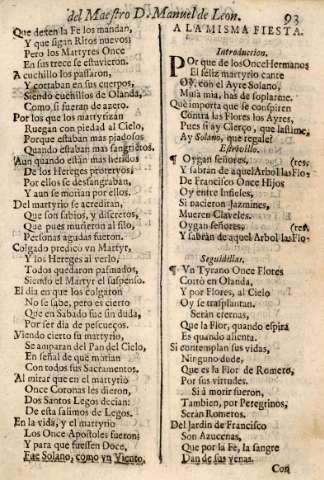 del Maestro D. Manuel de Leon. 93
Que deten la Fe los mandan,
Y que sigan Ritos nuevos;
Pero los Martyres Once
En sus trece se estuvieron.
A cuchillo los passaron,
Y cortaban en sus cuerpos,
Siendo cuchillos de Olanda,
Como si fueran de azero.
Por los que los martyrizan
Ruegan con piedad al Cielo,
Porque estaban mas piadosos
Quando estaban mas sangrientos.
Aun quando estàn mas heridos
De los Hereges proterv̄os;
Por ellos se desangraban,
Y aun se morian por ellos.
Del martyrio se acreditan,
Que son sabios, y discretos,
Que pues murieron al filo,
Personas agudas fueron.
Colgado predica vn Martyr,
Y los Hereges al verlo,
Todos quedaron pasmados,
Siendo el Martyr el suspenso.
El dia en que los colgaron
No se sabe, pero es cierto
Que en Sabado fue sin duda,
Por ser dia de pescueços.
Viendo cierto su martyrio,
Se amparan del Pan del Cielo,
En señal de que morian
Con todos sus Sacramentos.
Al mirar que en el martyrio
Once Coronas les dieron,
Dos Santos Legos decian:
De esta salimos de Legos.
En la vida, y el martyrio
Los Once Apostoles fueron;
Y para que fuessen Doce,
Fue Solano, como vn Viento.
A LA MISMA FIESTA.
Introduccion.
POr que de los Once Hermanos
El feliz martyrio cante
Oy, con el Ayre Solano,
Musa mia, has de soplarme.
Què importa que se conspiren
Contra las Flores los Ayres,
Pues si ay Cierço, que lastime,
Ay Solano, que regale?
Estrivillo.
¶ Oygan señores, (res.
Y sabràn de aquel Arbol las Flo-
De Francisco Once Hijos
Oy entre Infieles,
Si nacieron Jazmines,
Mueren Claveles.
Oygan señores, (res.
Y sabràn de aquel Arbol las Flo-
Seguidillas.
¶ Vn Tyrano Once Flores
Cortò en Olanda,
Y por Flores, al Cielo
Oy se trasplantan.
Seràn eternas,
Que la Flor, quando espira
Es quando alienta.
Si contemplan sus vidas,
Ninguno dude,
Que es la Flor de Romero,
Por sus virtudes.
Si à morir fueron,
Tambien, por Peregrinos,
Seràn Romeros.
Del Jardin de Francisco
Son Azucenas,
Que por la Fe, la sangre
Dan de sus venas.
Con